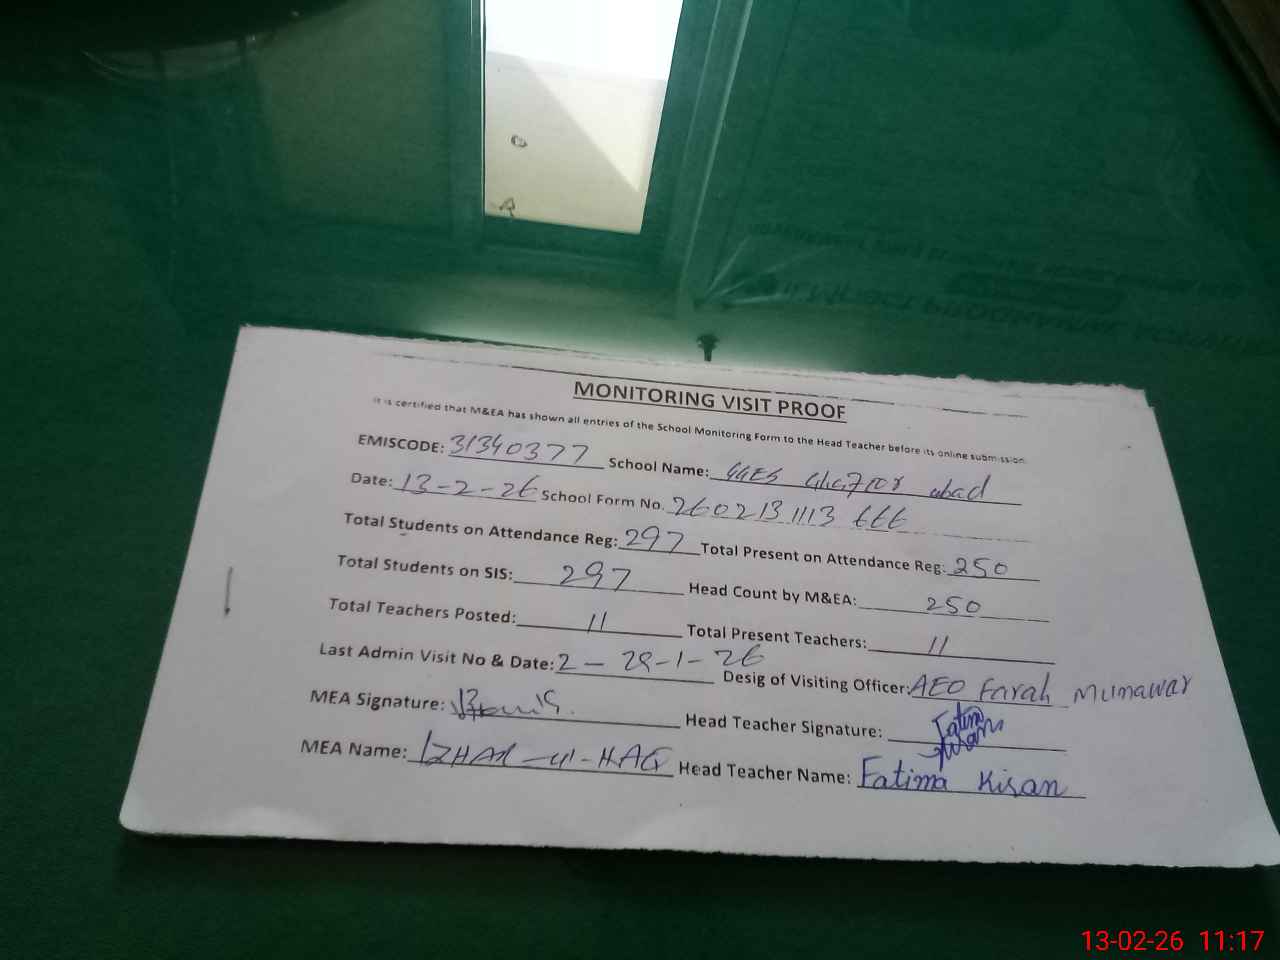 MONITORING VISIT PROOF
It is certified that M&EA has shown all entries of the School Monitoring Form to the Head Teacher before its online submission.
EMISCODE: 31340377 School Name: GGES abad
Date: 13-2-26 School Form No. 260213 1113 666
Total Students on Attendance Reg: 297 Total Present on Attendance Reg: 250
Total Students on SIS: 297 Head Count by M&EA: 250
Total Teachers Posted: 11 Total Present Teachers: 11
Last Admin Visit No & Date: 2 - 28-1-26 Desig of Visiting Officer: AEO Farah Munawar
MEA Signature: Head Teacher Signature: Fatima
MEA Name: IZHAR-ul-HAQ Head Teacher Name: Fatima Kisan
13-02-26 11:17